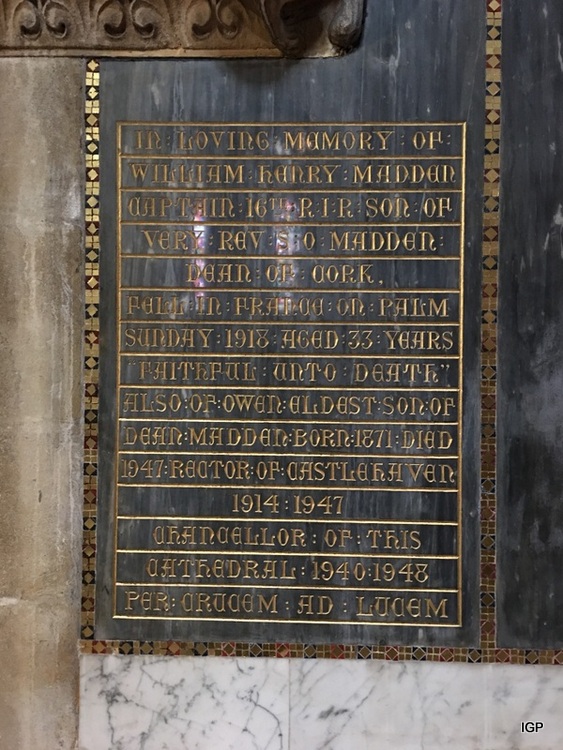 IN : LOVING : MEMORY : OF :
WILLIAM : HENRY : MADDEN
CAPTAIN : 16TH R.I.R. SON : OF
VERY : REV : S : O : MADDEN :
DEAN : OF : CORK .
FELL : IN : FRANCE : ON : PALM
SUNDAY : 1918 : AGED : 33 : YEARS
"FAITHFUL : UNTO : DEATH"
ALSO : OF : OWEN : ELDEST : SON : OF
DEAN : MADDEN : BORN : 1871 : DIED
1947 : RECTOR : OF : CASTLEHAVEN
1914 : 1947
CHANCELLOR : OF : THIS
CATHEDRAL : 1940 : 1948
PER : CRUCEM : AD : LUCEM
IGP